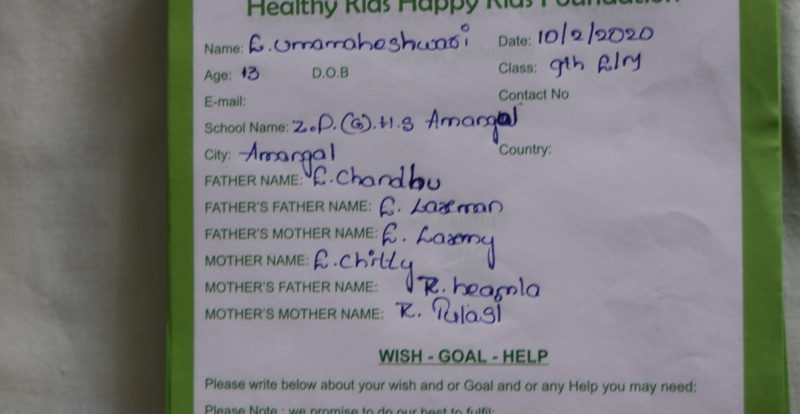 Healthy Kids Happy Kids Foundation
Name: E. Umamaheshwari Date: 10/2/2020
Age: 13 D.O.B Class: 9th E/M
E-mail: Contact No
School Name: Z.P.(G).H.S Amangal
City: Amangal Country:
FATHER NAME: E. Chandhu
FATHER'S FATHER NAME: E. Laxman
FATHER'S MOTHER NAME: E. Laxmy
MOTHER NAME: E. Chitty
MOTHER'S FATHER NAME: R.
MOTHER'S MOTHER NAME: R.
WISH - GOAL - HELP
Please write below about your wish and or Goal and or any Help you may need:
Please Note : we promise to do our best to fulfil: